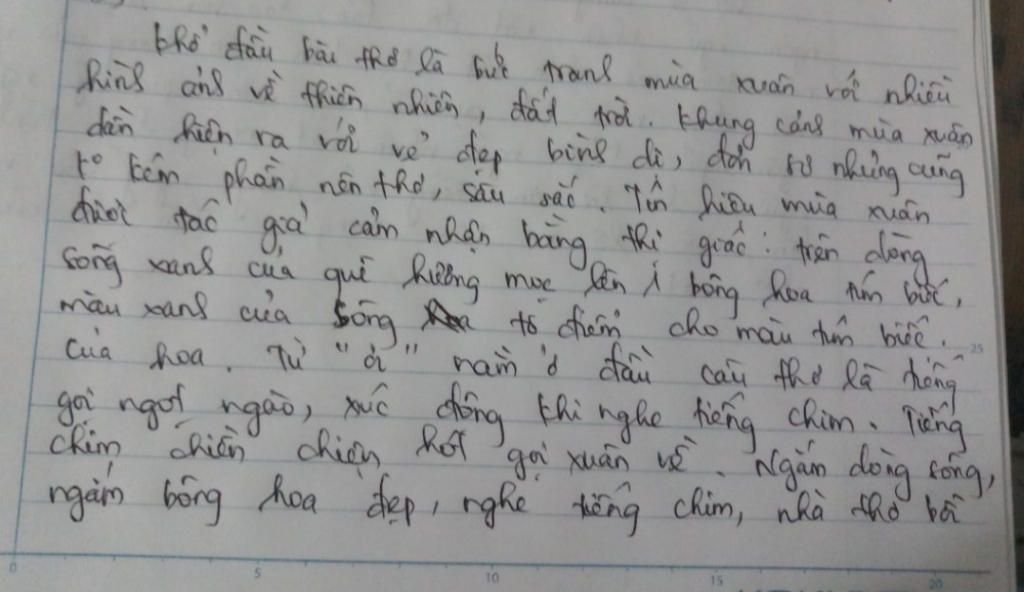 Khổ đầu bài thơ là bức tranh mùa xuân với nhiều
hình ảnh về thiên nhiên, đất trời. Khung cảnh mùa xuân
dần hiện ra với vẻ đẹp bình dị, đơn sơ nhưng cũng
k° kém phần nên thơ, sâu sắc. Tín hiệu mùa xuân
được tác giả cảm nhận bằng thị giác: trên dòng
sông xanh của quê hương mọc lên 1 bông hoa tím biếc,
màu xanh của sông tô điểm cho màu tím biếc.
của hoa. Từ "ơi" nằm ở đầu câu thơ là tiếng
gọi ngọt ngào, xúc động khi nghe tiếng chim. Tiếng
chim chiền chiện hót gọi xuân về. Ngắm dòng sông,
ngắm bông hoa đẹp, nghe tiếng chim, nhà thơ bồi
0 5 10 15 20
25